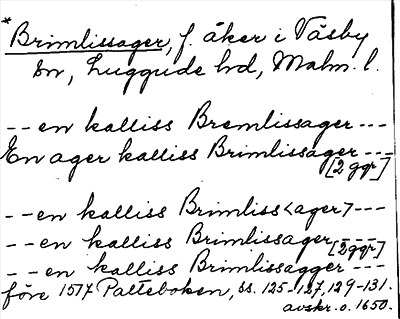 *
Brimlissager, f. åker i Väsby
sn, Luggude hd, Malm. l.
-- en kalliss Bremlissager ---
En ager kalliss Brimlissager ---
[2 ggr]
-- en kalliss Brimliss<ager> ---
-- en kalliss Brimlissager ---
[2 ggr]
-- en kalliss Brimlissagger ---
före 1517 Palteboken, ss. 125-127, 129-131.
avskr. o. 1650.